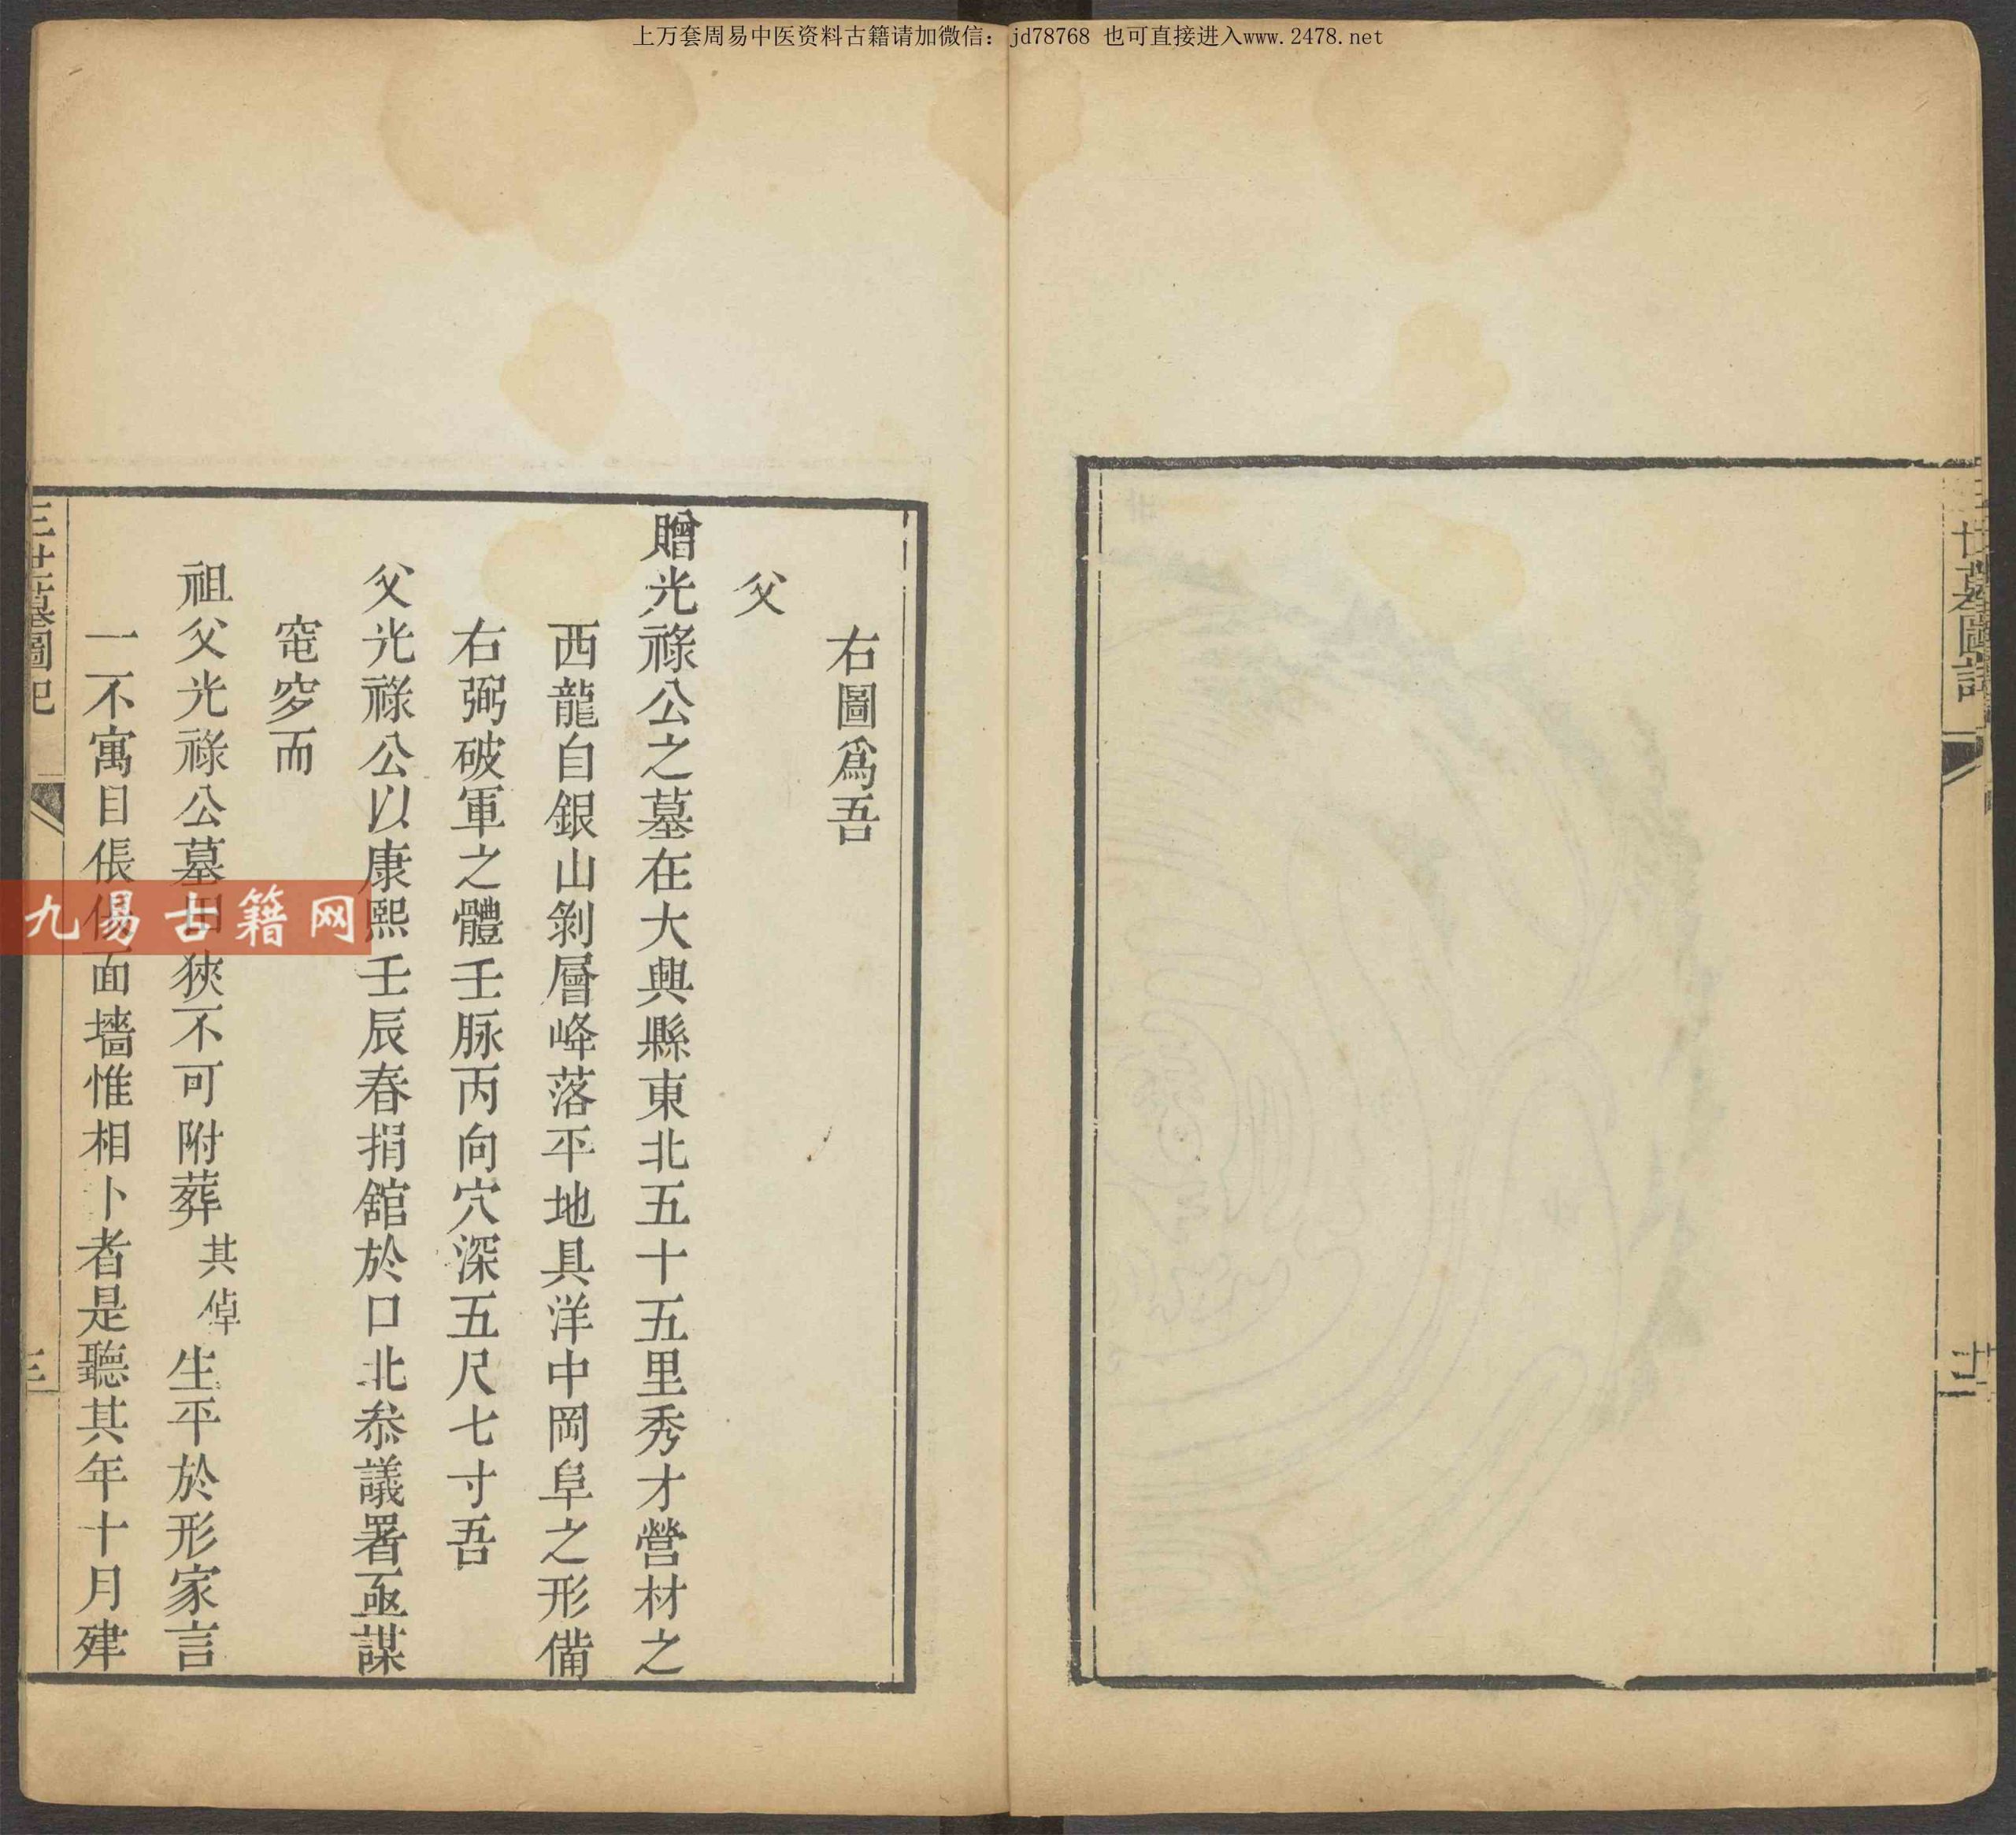 上万套周易中医资料古籍请加微信：jd78768 也可直接进入www.2478.net
三世墓圖記
十二
右圖爲吾
父
贈光祿公之墓在大興縣東北五十五里秀才營材之
西龍自銀山剝層峰落平地具洋中岡阜之形備
右弼破軍之體壬脉丙向穴深五尺七寸吾
父光祿公以康熙壬辰春捐舘於口北叅議署亟謀
窀穸而
祖父光祿公墓田狹不可附葬其倬生平於形家言
一不寓目倀倀面墻惟相卜者是聽其年十月建
三世墓圖記
三
九易古籍网